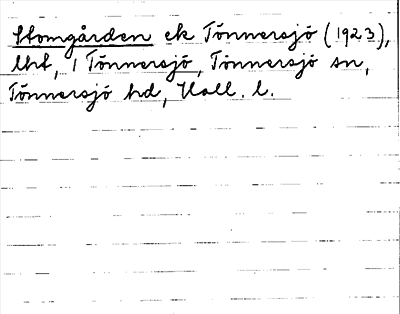 Stomgården ek Tönnersjö (1923),
lht, 1 Tönnersjö, Tönnersjö sn,
Tönnersjö hd, Hall. l.